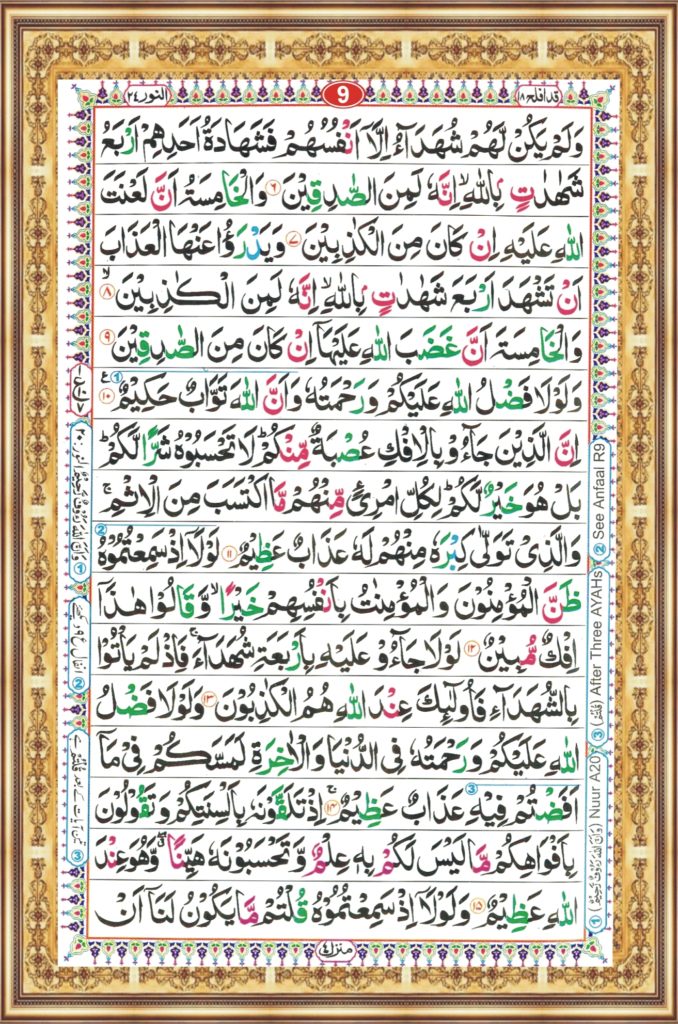 قد افلح ۱۸
9
النور ۲۴
وَلَمْ يَكُنْ لَّهُمْ شُهَدَآءُ اِلَّاۤ اَنْفُسُهُمْ فَشَهَادَةُ اَحَدِهِمْ اَرْبَعُ
شَهٰدٰتٍۭ بِاللّٰهِ ۙ اِنَّهٗ لَمِنَ الصّٰدِقِيْنَ ۶ وَالْخَامِسَةُ اَنَّ لَعْنَتَ
اللّٰهِ عَلَيْهِ اِنْ كَانَ مِنَ الْكٰذِبِيْنَ ۷ وَيَدْرَؤُا عَنْهَا الْعَذَابَ
اَنْ تَشْهَدَ اَرْبَعَ شَهٰدٰتٍۭ بِاللّٰهِ ۙ اِنَّهٗ لَمِنَ الْكٰذِبِيْنَ ۙ ۸
وَالْخَامِسَةَ اَنَّ غَضَبَ اللّٰهِ عَلَيْهَاۤ اِنْ كَانَ مِنَ الصّٰدِقِيْنَ ۹
وَلَوْلَا فَضْلُ اللّٰهِ عَلَيْكُمْ وَرَحْمَتُهٗ وَاَنَّ اللّٰهَ تَوَّابٌ حَكِيْمٌ ۱۰ ع ①
اِنَّ الَّذِيْنَ جَآءُوْ بِالْاِفْكِ عُصْبَةٌ مِّنْكُمْ ؕ لَا تَحْسَبُوْهُ شَرًّا لَّكُمْ ؕ
بَلْ هُوَ خَيْرٌ لَّكُمْ ؕ لِكُلِّ امْرِئٍ مِّنْهُمْ مَّا اكْتَسَبَ مِنَ الْاِثْمِ ۚ
وَالَّذِيْ تَوَلّٰى كِبْرَهٗ مِنْهُمْ لَهٗ عَذَابٌ عَظِيْمٌ ۱۱ لَوْلَاۤ اِذْ سَمِعْتُمُوْهُ ②
ظَنَّ الْمُؤْمِنُوْنَ وَالْمُؤْمِنٰتُ بِاَنْفُسِهِمْ خَيْرًا ۙ وَّقَالُوْا هٰذَاۤ
اِفْكٌ مُّبِيْنٌ ۱۲ لَوْلَا جَآءُوْ عَلَيْهِ بِاَرْبَعَةِ شُهَدَآءَ ۚ فَاِذْ لَمْ يَاْتُوْا
بِالشُّهَدَآءِ فَاُولٰٓئِكَ عِنْدَ اللّٰهِ هُمُ الْكٰذِبُوْنَ ۱۳ وَلَوْلَا فَضْلُ
اللّٰهِ عَلَيْكُمْ وَرَحْمَتُهٗ فِى الدُّنْيَا وَالْاٰخِرَةِ لَمَسَّكُمْ فِيْ مَاۤ
اَفَضْتُمْ فِيْهِ عَذَابٌ عَظِيْمٌ ③ ۚ ۱۴ اِذْ تَلَقَّوْنَهٗ بِاَلْسِنَتِكُمْ وَتَقُوْلُوْنَ
بِاَفْوَاهِكُمْ مَّا لَيْسَ لَكُمْ بِهٖ عِلْمٌ وَّتَحْسَبُوْنَهٗ هَيِّنًا ۖ وَّهُوَ عِنْدَ
اللّٰهِ عَظِيْمٌ ۱۵ وَلَوْلَاۤ اِذْ سَمِعْتُمُوْهُ قُلْتُمْ مَّا يَكُوْنُ لَنَاۤ اَنْ
منزل ۴
① (وَاَنَّ اللّٰهَ رَءُوْفٌ رَّحِيْمٌ) Nuur A20 ③ After Three AYAHs ② See Anfaal R9
① وَاَنَّ اللّٰهَ رَءُوْفٌ رَّحِيْمٌ النور ۲۰
②
③